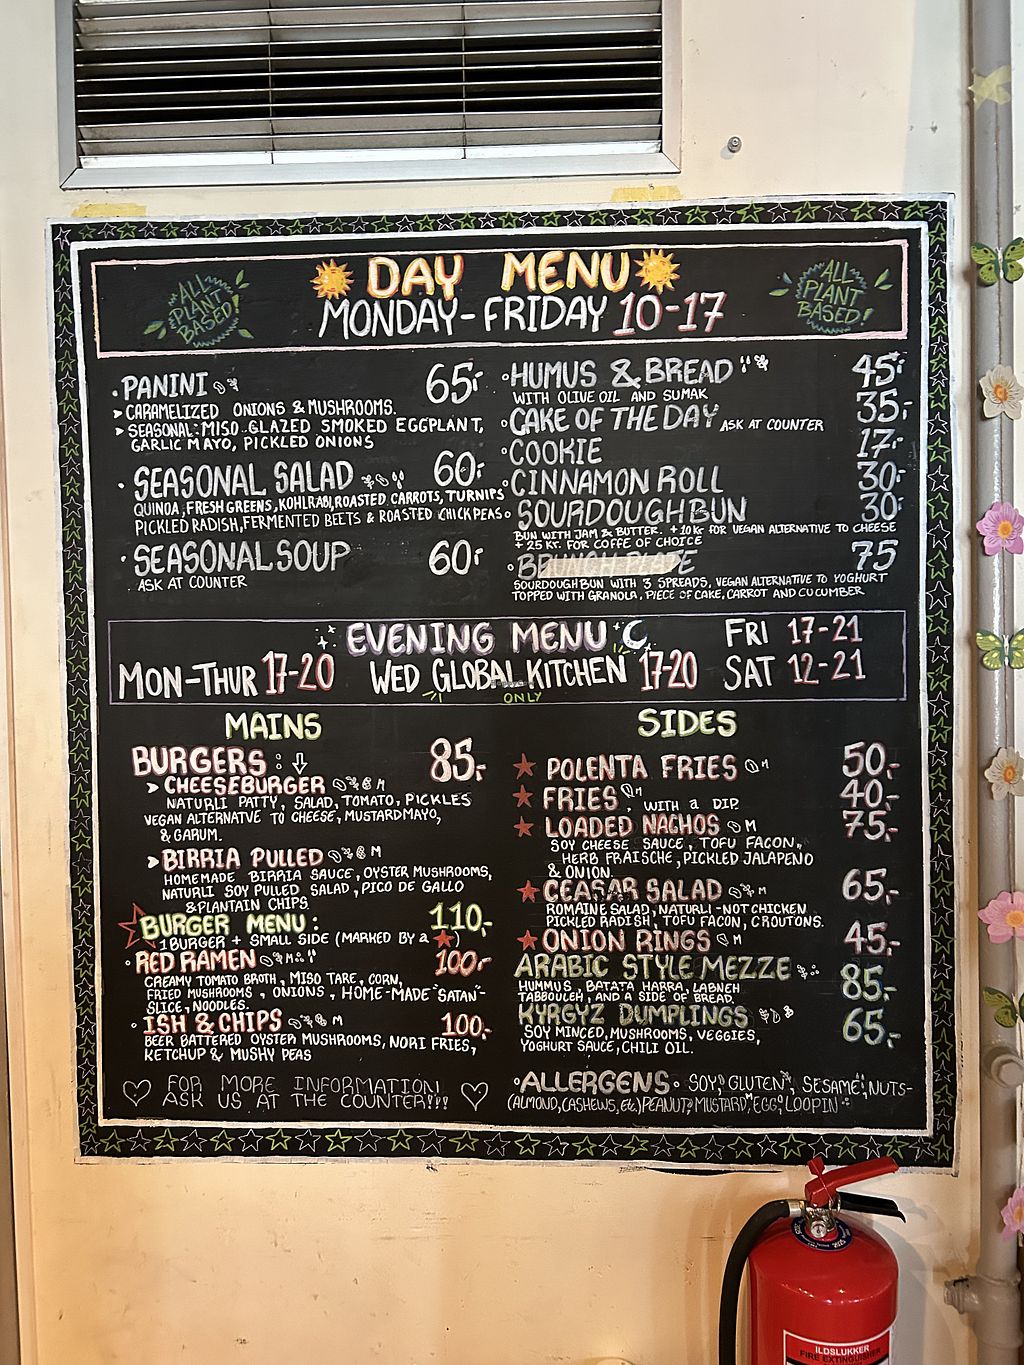 DAY MENU
MONDAY-FRIDAY 10-17
ALL PLANT BASED!
ALL PLANT BASED!
PANINI 65,-
CARAMELIZED ONIONS & MUSHROOMS.
SEASONAL: MISO GLAZED SMOKED EGGPLANT,
GARLIC MAYO, PICKLED ONIONS
SEASONAL SALAD 60,-
QUINOA, FRESH GREENS, KOHLRABI, ROASTED CARROTS, TURNIPS
PICKLED RADISH, FERMENTED BEETS & ROASTED CHICKPEAS
SEASONAL SOUP 60,-
ASK AT COUNTER
HUMUS & BREAD 45,-
WITH OLIVE OIL AND SUMAK
CAKE OF THE DAY ASK AT COUNTER 35,-
COOKIE 17,-
CINNAMON ROLL 30,-
SOURDOUGH BUN 30,-
BUN WITH JAM & BUTTER. +10 Kr FOR VEGAN ALTERNATIVE TO CHEESE
+ 25 KT. FOR COFFE OF CHOICE
BRUNCH PLATE 75
SOURDOUGH BUN WITH 3 SPREADS, VEGAN ALTERNATIVE TO YOGHURT
TOPPED WITH GRANOLA, PIECE OF CAKE, CARROT AND CUCUMBER
EVENING MENU
MON-THUR 17-20
WED GLOBAL KITCHEN 17-20
ONLY
FRI 17-21
SAT 12-21
MAINS
BURGERS: 85,-
CHEESEBURGER
NATURLI PATTY, SALAD, TOMATO, PICKLES
VEGAN ALTERNATVE TO CHEESE, MUSTARDMAYO,
& GARUM.
BIRRIA PULLED
HOMEMADE BIRRIA SAUCE, OYSTER MUSHROOMS,
NATURLI SOY PULLED SALAD, PICO DE GALLO
& PLANTAIN CHIPS
BURGER MENU: 110,-
1 BURGER + SMALL SIDE (MARKED BY a ★)
RED RAMEN 100,-
CREAMY TOMATO BROTH, MISO TARE, CORN,
FRIED MUSHROOMS, ONIONS, HOME-MADE "SATAN"-
SLICE, NOODLES.
ISH & CHIPS 100,-
BEER BATTERED OYSTER MUSHROOMS, NORI FRIES,
KETCHUP & MUSHY PEAS
FOR MORE INFORMATION
ASK US AT THE COUNTER!!!
SIDES
POLENTA FRIES 50,-
FRIES, WITH a DIP 40,-
LOADED NACHOS 75,-
SOY CHEESE SAUCE, TOFU FACON,
HERB FRAISCHE, PICKLED JALAPENO
& ONION.
CEASAR SALAD 65,-
ROMAINE SALAD, NATURLI-NOT CHICKEN
PICKLED RADISH, TOFU FACON, CROUTONS.
ONION RINGS 45,-
ARABIC STYLE MEZZE 85,-
HUMMUS, BATATA HARRA, LABNEH
TABBOULEH, AND A SIDE OF BREAD.
KYRGYZ DUMPLINGS 65,-
SOY MINCED, MUSHROOMS, VEGGIES,
YOGHURT SAUCE, CHILI OIL.
ALLERGENS: SOY, GLUTEN, SESAME, NUTS-
(ALMOND, CASHEWS, Etc) PEANUT, MUSTARD, EGG, LOOPIN
ILDSLUKKER
FIRE EXTINGUISHER